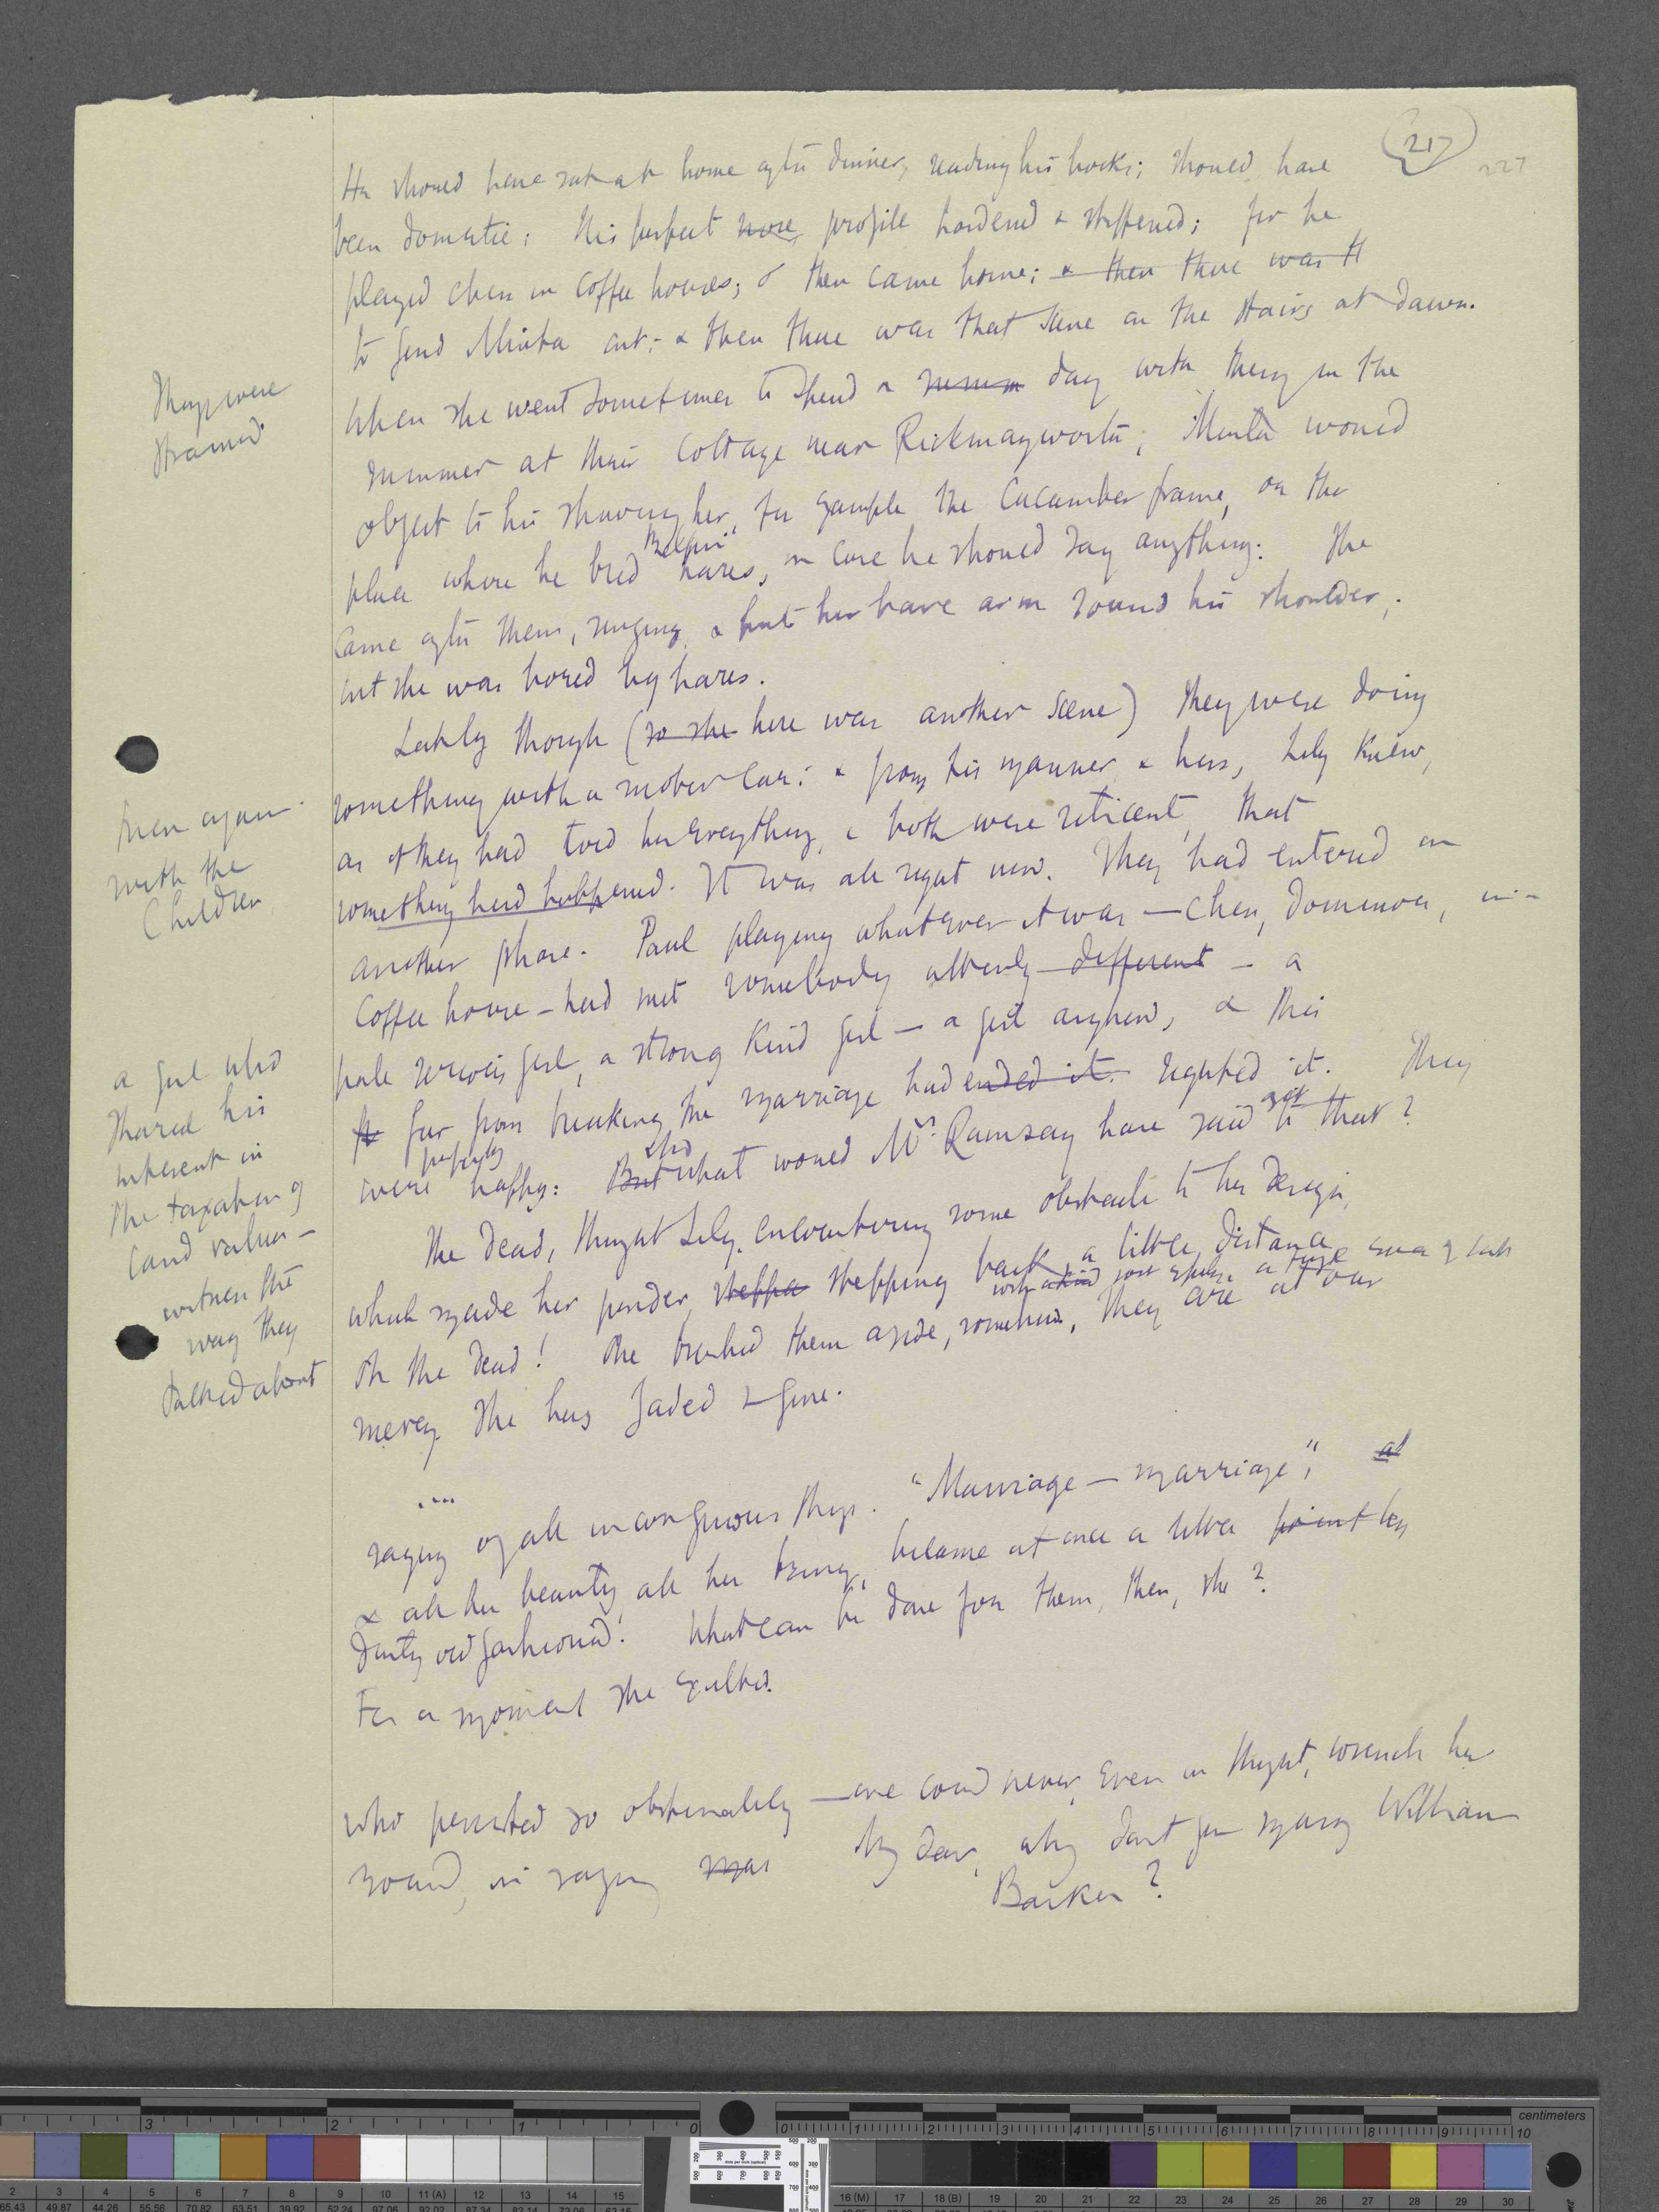 217
227
He should have sat at home after dinner, reading his books; should have
been domestic: His perfect nose, profile hardened & stiffened; for he
played chess in coffee houses; & then came home; & then there was th
to find Minta out; & then there was that scene on the stairs at dawn.
They were
strained.
When she went sometimes to spend a summ day with them in the
summer at their cottage near Rickmansworth; Minta would
object to his showing her, for example the cucumber frame, or the
place where he bred Belgian hares, in case he should say anything: She
came after them, singing, & put her bare arm round his shoulder;
but she was bored by hares.
Lately though (so she here was another scene) they were doing
something with a motor car: & from his manner & hers, Lily knew,
then again
with the
Children
as if they had told her everything, & both were reticent, that
something had happened. It was all right now. They had entered on
another phase. Paul playing whatever it was — chess, dominoes, in a
Coffee house — had met somebody utterly different — a
pale serious girl, a strong kind girl — a girl anyhow, & this
a girl who
shared his
interest in
the taxation of
land values —
witness the
way they
talked about
far from breaking the marriage had ended it. righted it. They
were perfectly happy: But what would Mrs. Ramsay have said to that?
The dead, thought Lily, encountering some obstacle to her design,
which made her ponder, steppe stepping back a little distance,
Oh the dead! She brushed them aside, somehow, they are at our
mercy. She has faded & gone.
....
saying of all incongruous things. "Marriage — marriage"; at
& all her beauty, all her being, became at once a little pointless
dusty old fashioned. What can be done for them, then, she?
For a moment she exulted.
who persisted so obstinately — one could never, even in thought, wrench her
round, in saying My dear, why dont you marry William
Barker?